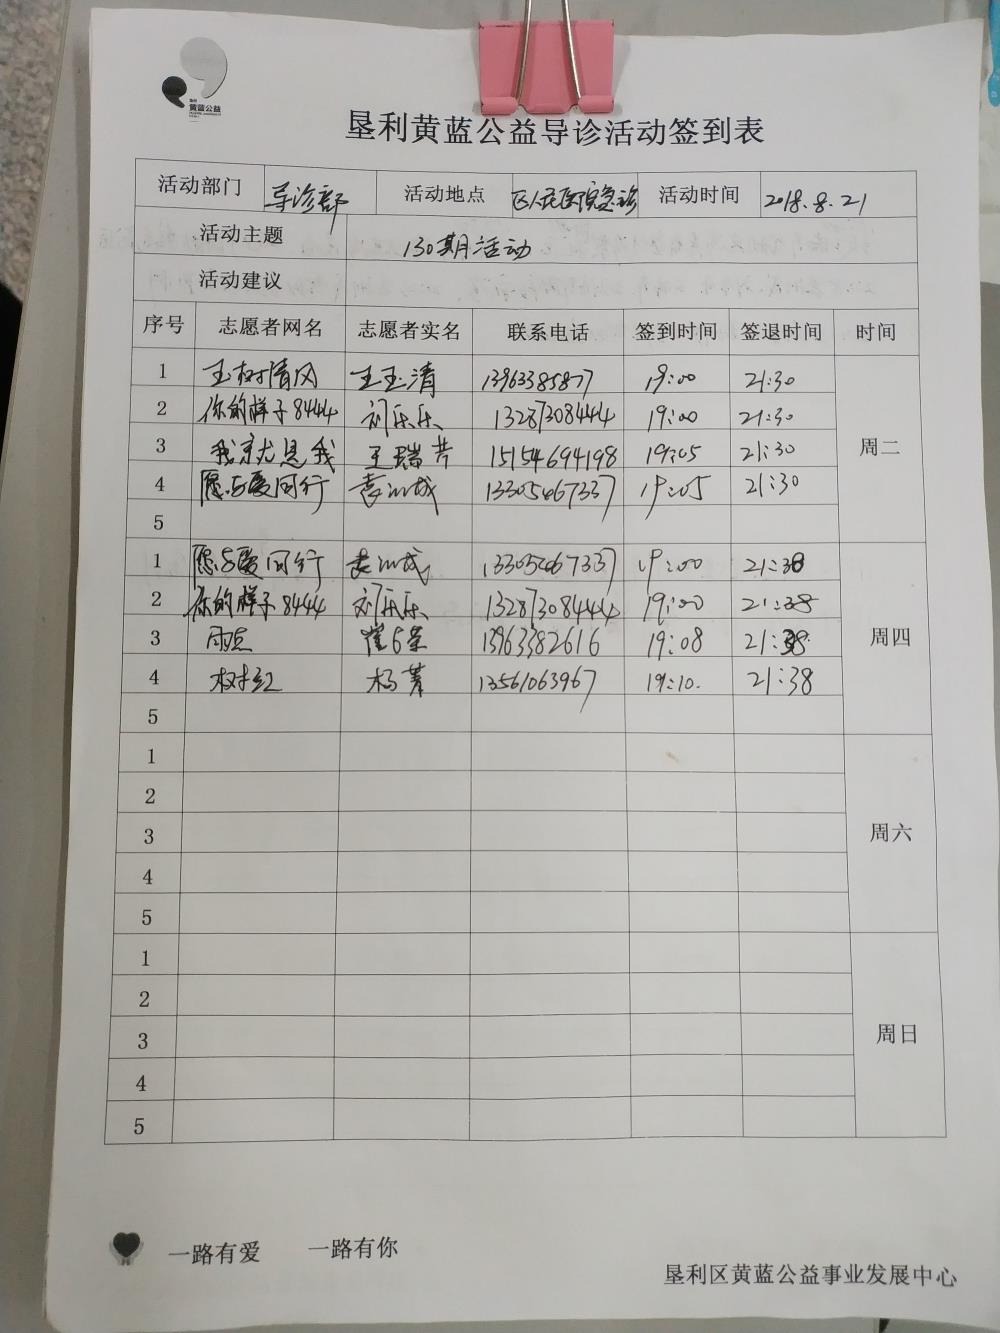 黄蓝公益
垦利黄蓝公益导诊活动签到表
活动部门 导诊部 活动地点 区人民医院急诊 活动时间 2018.8.21
活动主题 130期活动
活动建议
序号 志愿者网名 志愿者实名 联系电话 签到时间 签退时间 时间
1 玉树清风 王玉清 13963385877 19:00 21:30
2 你的样子8444 刘乐乐 13287308444 19:00 21:30
3 我就是我 王瑞芳 15154694198 19:05 21:30 周二
4 愿与爱同行 13305467337 19:05 21:30
5
1 愿与爱同行 13305467337 19:00 21:38
2 你的样子8444 刘乐乐 13287308444 19:00 21:38
3 雨点 13963382616 19:08 21:38 周四
4 杨菁 13561063967 19:10. 21:38
5
1
2
3 周六
4
5
1
2
3 周日
4
5
一路有爱 一路有你
垦利区黄蓝公益事业发展中心